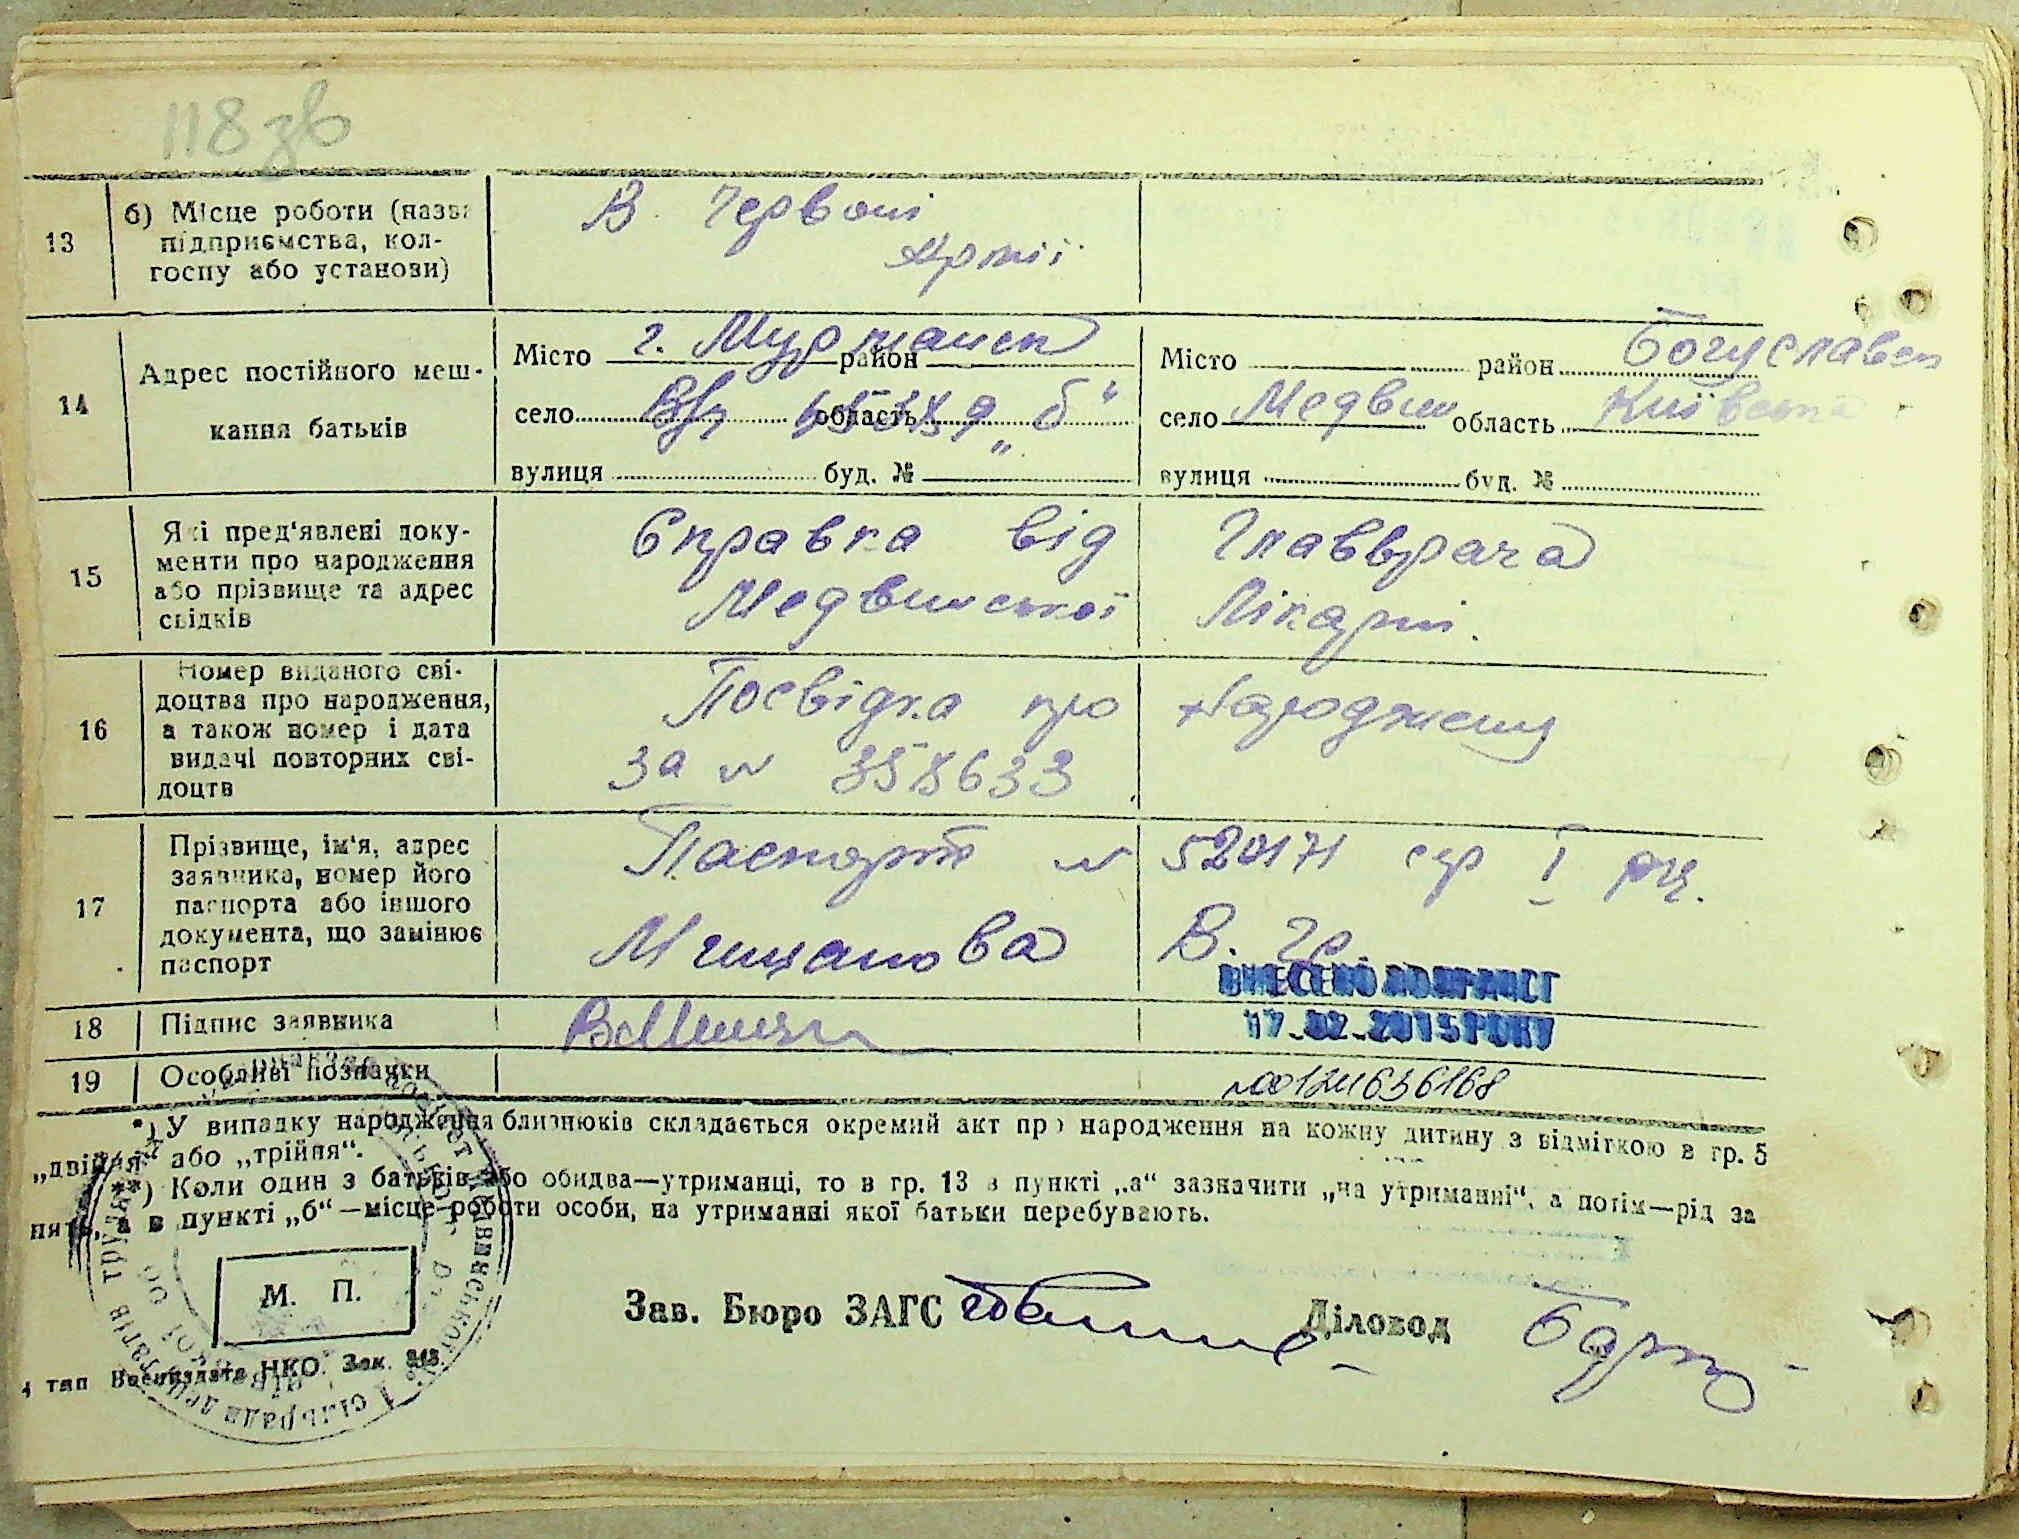 118 зв
13
б) Місце роботи (назва
підприємства, кол-
госпу або установи)
В Червоні
Армії
14
Адрес постійного меш-
кання батьків
Місто г. Мурманск район
село область „б“
вулиця буд. №
Місто район Богуславск
село Медвин область Київська
вулиця буд. №
15
Які пред'явлені доку-
менти про народження
або прізвище та адрес
свідків
Справка від Главврача
Медвинської Лікарні.
16
Номер виданого сві-
доцтва про народження,
а також номер і дата
видачі повторних сві-
доцтв
Посвідка про Народженя
за № 358633
17
Прізвище, ім'я, адрес
заявника, номер його
паспорта або іншого
документа, що замінює
паспорт
Паспорт № 520171 сер I
В. Гр.
ВНЕСЕНО ДО
17.02.2015 РОКУ
18
Підпис заявника
19
Особливі позначки
№00124636168
*) У випадку народження близнюків складається окремий акт про народження на кожну дитину з відміткою в гр. 5
„двійня“ або „трійня“.
**) Коли один з батьків або обидва—утриманці, то в гр. 13 в пункті „а“ зазначити „на утриманні“, а потім—рід за
нять, а в пункті „б“—місце роботи особи, на утриманні якої батьки перебувають.
М. П.
Зав. Бюро ЗАГС
Діловод
4 тип Воениздата НКО. Зак.